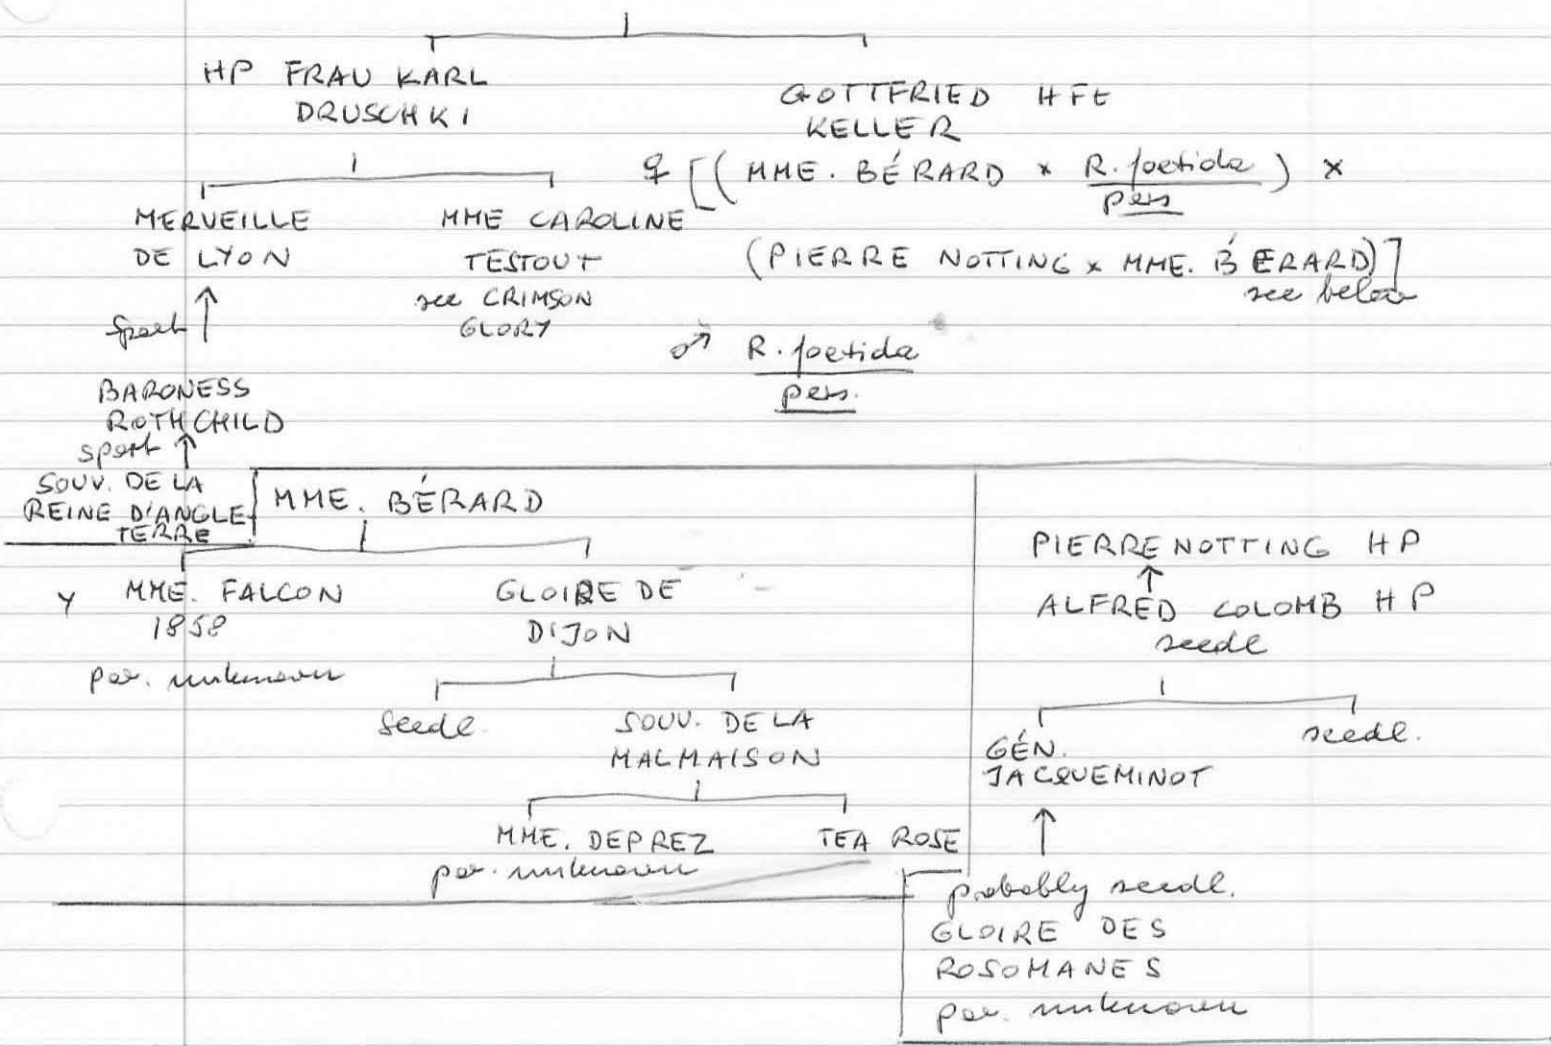 HP FRAU KARL
DRUSCHKI
GOTTFRIED HFt
KELLER
♀ [(MME. BÉRARD × R. foetida) ×
pers
(PIERRE NOTTING × MME. BÉRARD)]
see below
MERVEILLE
DE LYON
MME CAROLINE
TESTOUT
see CRIMSON
GLORY
♂ R. foetida
pers.
sport ↑
BARONESS
ROTHCHILD
sport ↑
SOUV. DE LA
REINE D'ANGLE
TERRE
MME. BÉRARD
Y MME. FALCON
1858
par. unknown
GLOIRE DE
DIJON
seedl.
SOUV. DE LA
MALMAISON
MME. DEPREZ
par. unknown
TEA ROSE
PIERRE NOTTING HP
↑
ALFRED COLOMB HP
seedl
GÉN.
JACQUEMINOT
seedl.
↑
probably seedl.
GLOIRE DES
ROSOMANES
par. unknown